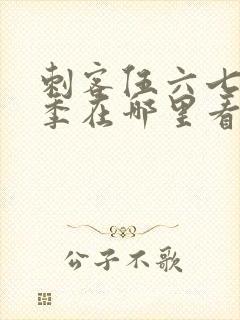 刺客伍六七
季在哪里看
公子不歌